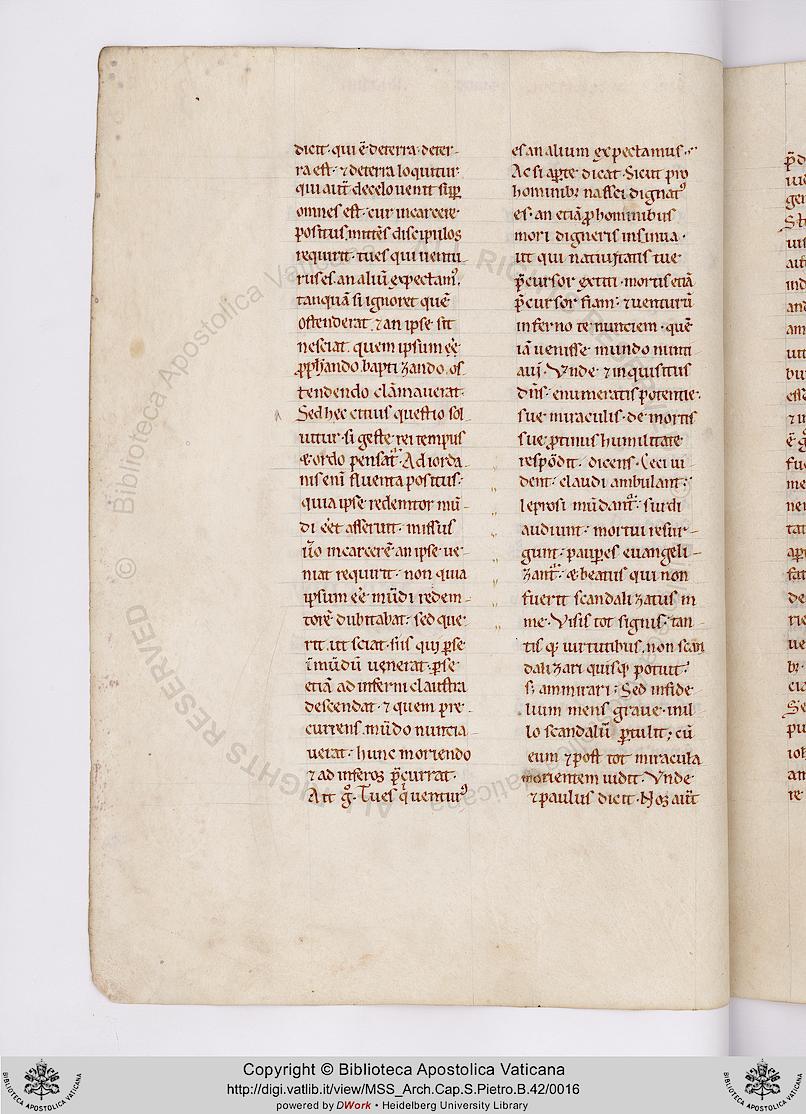 dicit. qui ē deterra. deter-
ra est. ⁊ deterra loquitur.
qui aūt decelo uenit sup
omnes est. cur incarcere
positus. mittēs discipulos
requirit. tues qui uentu-
rus es. an aliū expectamꝰ.
tanquā si ignoret quē
ostenderat. ⁊ an ipse sit
nesciat. quem ipsum eē
ꝓph&ando. baptizando. os-
tendendo clāmauerat.
Sed hec citius questio sol
uitur. si geste rei tempus
& ordo pensatʳ. Ad iorda-
nis eni fluenta positus.
quia ipse redemtor mū-
di eēt asseruit. missus
u̾o incarcerē an ipse ue-
niat requirit. non quia
ipsum eē mūdi redem-
torē dubitabat. sed que-
rit. ut sciat. si is qui ꝑse
ī mūdū uenerat. ꝑse
etiā ad inferni claustra
descendat. ⁊ quem pre-
currens. mūdo nuncia-
uerat. hunc moriendo
⁊ ad inferos p̄currat.
Ait g̊. Tu es q uenturꝰ
es an alium expectamus.
Ac si aꝑte dicat. Sicut pro
hominibꝫ nassci dignatꝰ
es. an etiā ꝓ hominibus
mori digneris insinua.
ut qui natiuitatis tue
p̄cursor extiti. mortis etiā
p̄cursor fiam. ⁊ uenturū
inferno te nunciem. quē
iā uenisse mundo nunti
aui. Vnde ⁊ inquisitus
dn̄s. enumeratis potentie.
sue miraculis. de mortis
sue ꝓtinus humilitate
respōdit. dicens. Ceci ui-
dent. claudi ambulant.
leprosi mūdantʳ. surdi
audiunt. mortui resur-
gunt. pauꝑes euangeli-
zantʳ. & beatus qui non
fuerit scandalizatus in
me. Visis tot signis. tan-
tisqꝫ uirtutibus. non scan
dalizari quisqꝫ potuit.
sꝫ ammirari. Sed infide
lium mens graue. inil
lo scandalū ꝑtulit; cū
eum ⁊ post tot miracula
morientem uidit. Vnde
⁊ paulus dicit. Nos aūt
Copyright © Biblioteca Apostolica Vaticana
http://digi.vatlib.it/view/MSS_Arch.Cap.S.Pietro.B.42/0016
powered by DWork • Heidelberg University Library
BIBLIOTECA APOSTOLICA VATICANA
BIBLIOTECA APOSTOLICA VATICANA
© Biblioteca Apostolica Vaticana
ALL RIGHTS RESERVED